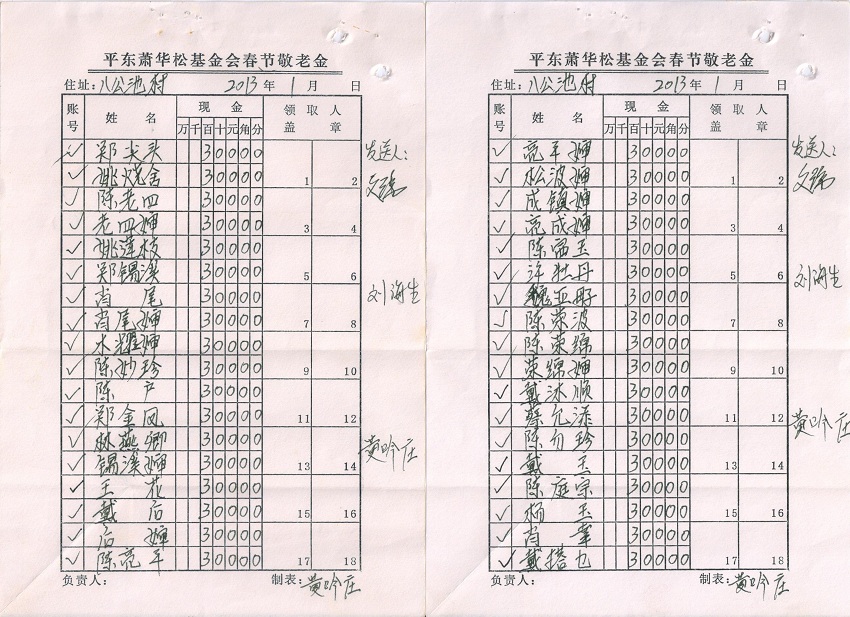 平东萧华松基金会春节敬老金
住址:八公池村 2013年 1月 日
账号 姓名 现金 领取人盖章
万千百十元角分
✓ 郑尖头 30000
✓ 姚烧舍 30000 1 2
✓ 陈老四 30000
✓ 老四婶 30000 3 4
✓ 姚莲枝 30000
✓ 郑锡溪 30000 5 6
✓ 肖尾 30000
✓ 肖尾婶 30000 7 8
✓ 木耀婶 30000
✓ 陈妙珍 30000 9 10
✓ 陈户 30000
✓ 郑金凤 30000 11 12
✓ 林燕卿 30000
✓ 锡溪婶 30000 13 14
✓ 王花 30000
✓ 戴后 30000 15 16
✓ 后婶 30000
✓ 陈亮平 30000 17 18
负责人: 制表:黄吟庄
发送人:
刘海生
黄吟庄
平东萧华松基金会春节敬老金
住址:八公池村 2013年 1月 日
账号 姓名 现金 领取人盖章
万千百十元角分
✓ 亮平婶 30000
✓ 松波婶 30000 1 2
✓ 成镇婶 30000
✓ 亮成婶 30000 3 4
✓ 陈雷玉 30000
✓ 许牡丹 30000 5 6
✓ 魏亚 30000
✓ 陈荣波 30000 7 8
✓ 陈荣绵 30000
✓ 荣绵婶 30000 9 10
✓ 戴沐顺 30000
✓ 蔡允添 30000 11 12
✓ 陈勿珍 30000
✓ 戴玉 30000 13 14
✓ 陈庭宗 30000
✓ 杨玉 30000 15 16
✓ 肖幸 30000
✓ 戴搭 30000 17 18
负责人: 制表:黄吟庄
发送人:
刘海生
黄吟庄